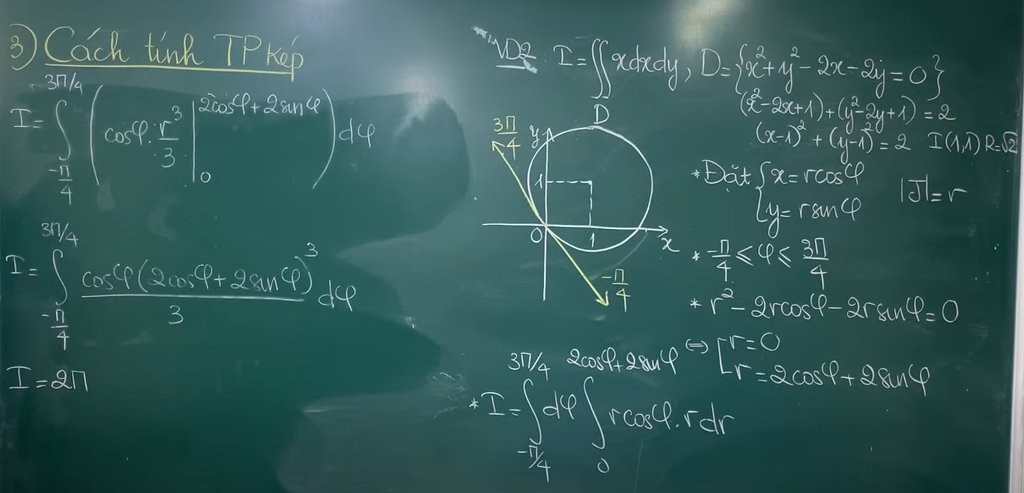 3) Cách tính TP kép
I = ∫_{-π/4}^{3π/4} ( cosφ · r³/3 |_0^{2cosφ + 2sinφ} ) dφ
I = ∫_{-π/4}^{3π/4} cosφ(2cosφ + 2sinφ)³/3 dφ
I = 2π
VD2: I = ∬_D xdxdy, D = {x² + y² - 2x - 2y = 0}
(x² - 2x + 1) + (y² - 2y + 1) = 2
(x-1)² + (y-1)² = 2 I(1,1) R = √2
3π/4
y
1
0
1
x
-π/4
* Đặt { x = rcosφ
y = rsinφ
|J| = r
* -π/4 ≤ φ ≤ 3π/4
* r² - 2rcosφ - 2rsinφ = 0
⇔ [ r = 0
r = 2cosφ + 2sinφ
* I = ∫_{-π/4}^{3π/4} dφ ∫_0^{2cosφ + 2sinφ} rcosφ . r dr